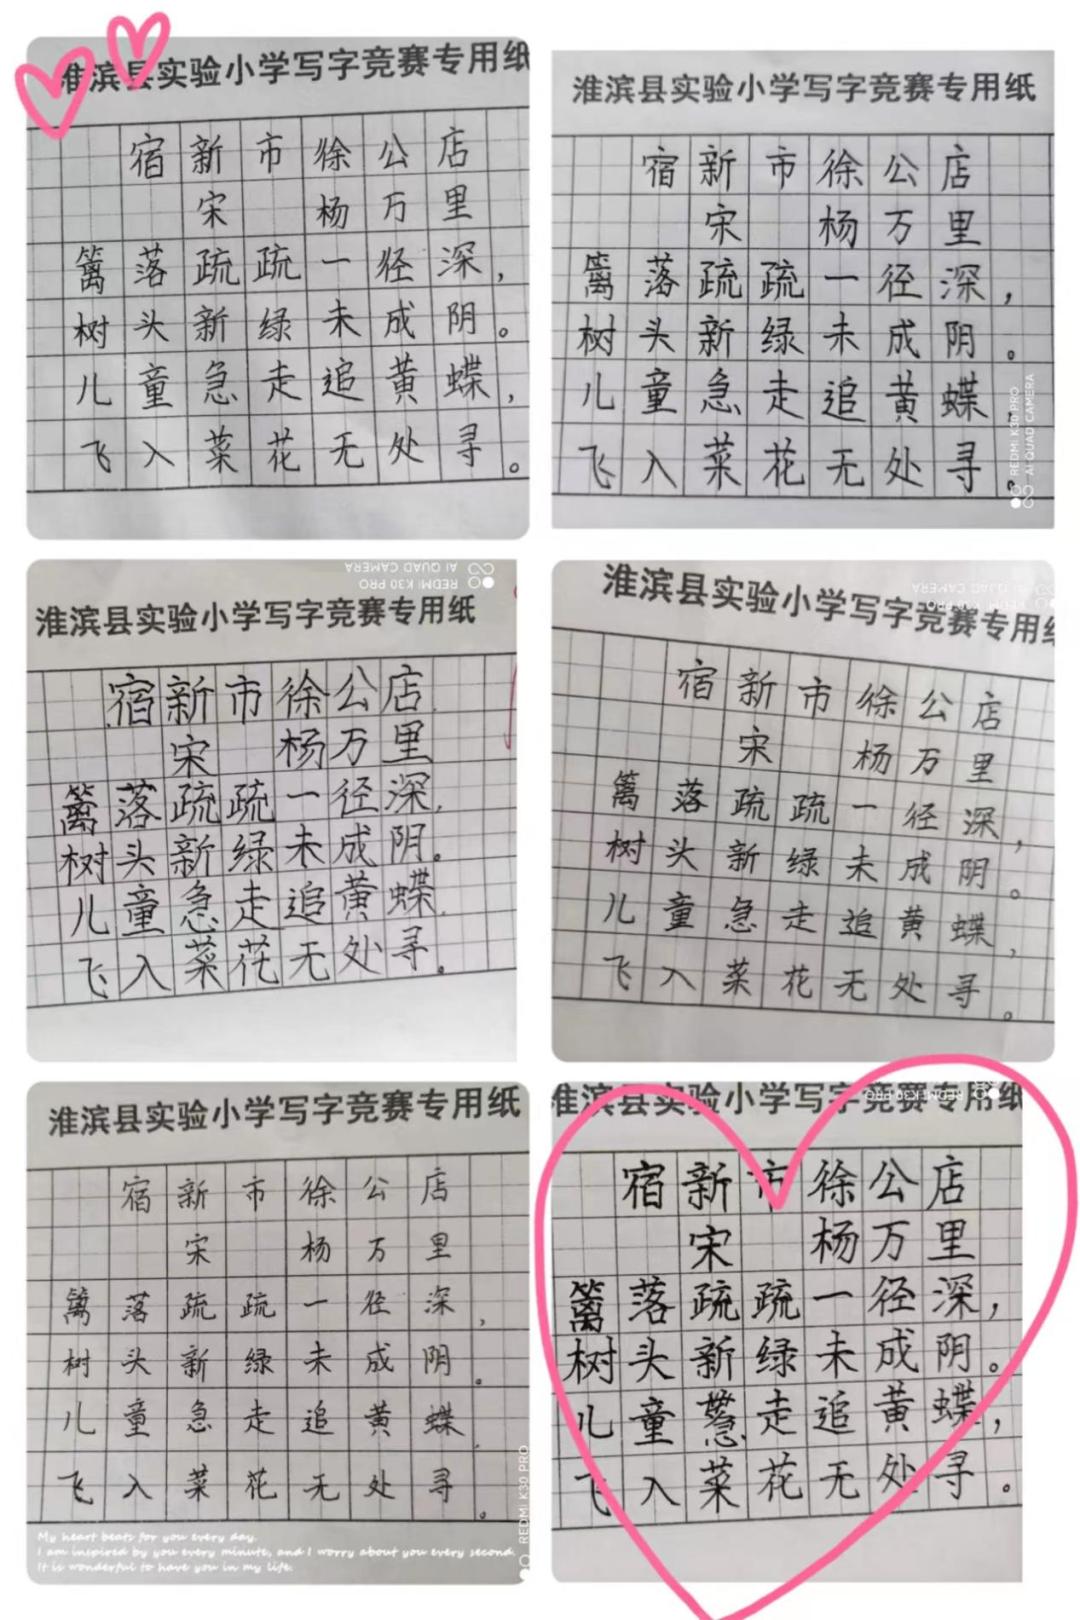 淮滨县实验小学写字竞赛专用纸
宿新市徐公店
宋 杨万里
篱落疏疏一径深，
树头新绿未成阴。
儿童急走追黄蝶，
飞入菜花无处寻。
淮滨县实验小学写字竞赛专用纸
宿新市徐公店
宋 杨万里
篱落疏疏一径深，
树头新绿未成阴。
儿童急走追黄蝶，
飞入菜花无处寻。
REDMI K30 PRO
AI QUAD CAMERA
REDMI K30 PRO
AI QUAD CAMERA
淮滨县实验小学写字竞赛专用纸
宿新市徐公店
宋 杨万里
篱落疏疏一径深，
树头新绿未成阴。
儿童急走追黄蝶，
飞入菜花无处寻。
REDMI K30 PRO
AI QUAD CAMERA
淮滨县实验小学写字竞赛专用纸
宿新市徐公店
宋 杨万里
篱落疏疏一径深，
树头新绿未成阴。
儿童急走追黄蝶，
飞入菜花无处寻。
淮滨县实验小学写字竞赛专用纸
宿新市徐公店
宋 杨万里
篱落疏疏一径深，
树头新绿未成阴。
儿童急走追黄蝶，
飞入菜花无处寻。
My heart beats for you every day.
I am inspired by you every minute, and I worry about you every second.
It is wonderful to have you in my life.
REDMI K30 PRO
淮滨县实验小学写字竞赛专用纸
REDMI K30 PRO
宿新市徐公店
宋 杨万里
篱落疏疏一径深，
树头新绿未成阴。
儿童急走追黄蝶，
飞入菜花无处寻。